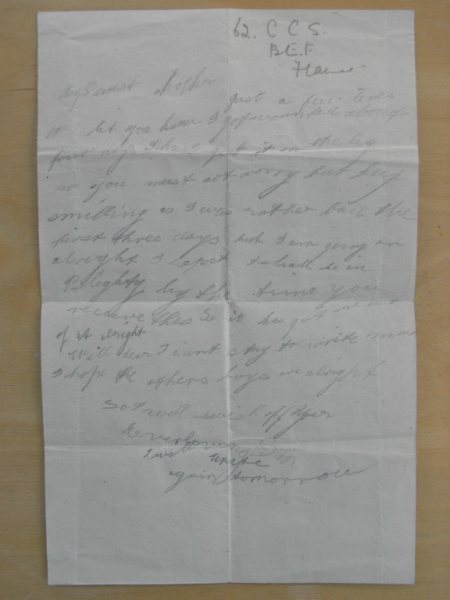 62. C C S.
B.E.F
France
My Dearest Mother
just a few lines
to let you know I got wounded
I have got it in the leg
so you must not worry but keep
smiling as I was rather bad the
first three days but I am going on
alright I expect I shall be in
Blighty by the time you
receive this so it has got me out
of it alright
Well dear I cant stay to write more
I hope the others boys are alright
So I will
Everloving Son
I will write
again tomorrow